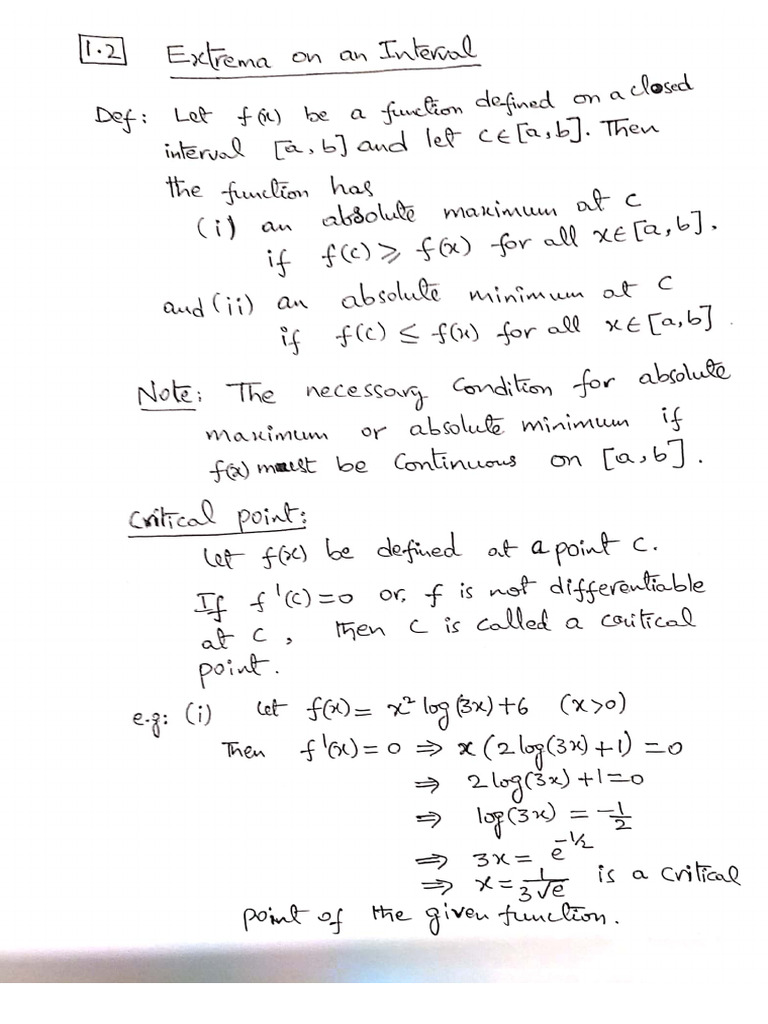 1.2 Extrema on an Interval
Def: Let f(x) be a function defined on a closed
interval [a,b] and let c∈[a,b]. Then
the function has
(i) an absolute maximum at c
if f(c) ⩾ f(x) for all x∈[a,b].
and (ii) an absolute minimum at c
if f(c) ≤ f(x) for all x∈[a,b].
Note: The necessary condition for absolute
maximum or absolute minimum if
f(x) must be continuous on [a,b].
Critical point:
Let f(x) be defined at a point c.
If f'(c)=0 or, f is not differentiable
at c, then c is called a critical
point.
e.g: (i) Let f(x) = x² log(3x)+6 (x>0)
Then f'(x)=0 ⇒ x(2log(3x)+1)=0
⇒ 2log(3x)+1=0
⇒ log(3x) = -1/2
⇒ 3x = e^(-1/2)
⇒ x = 1/(3√e) is a critical
point of the given function.